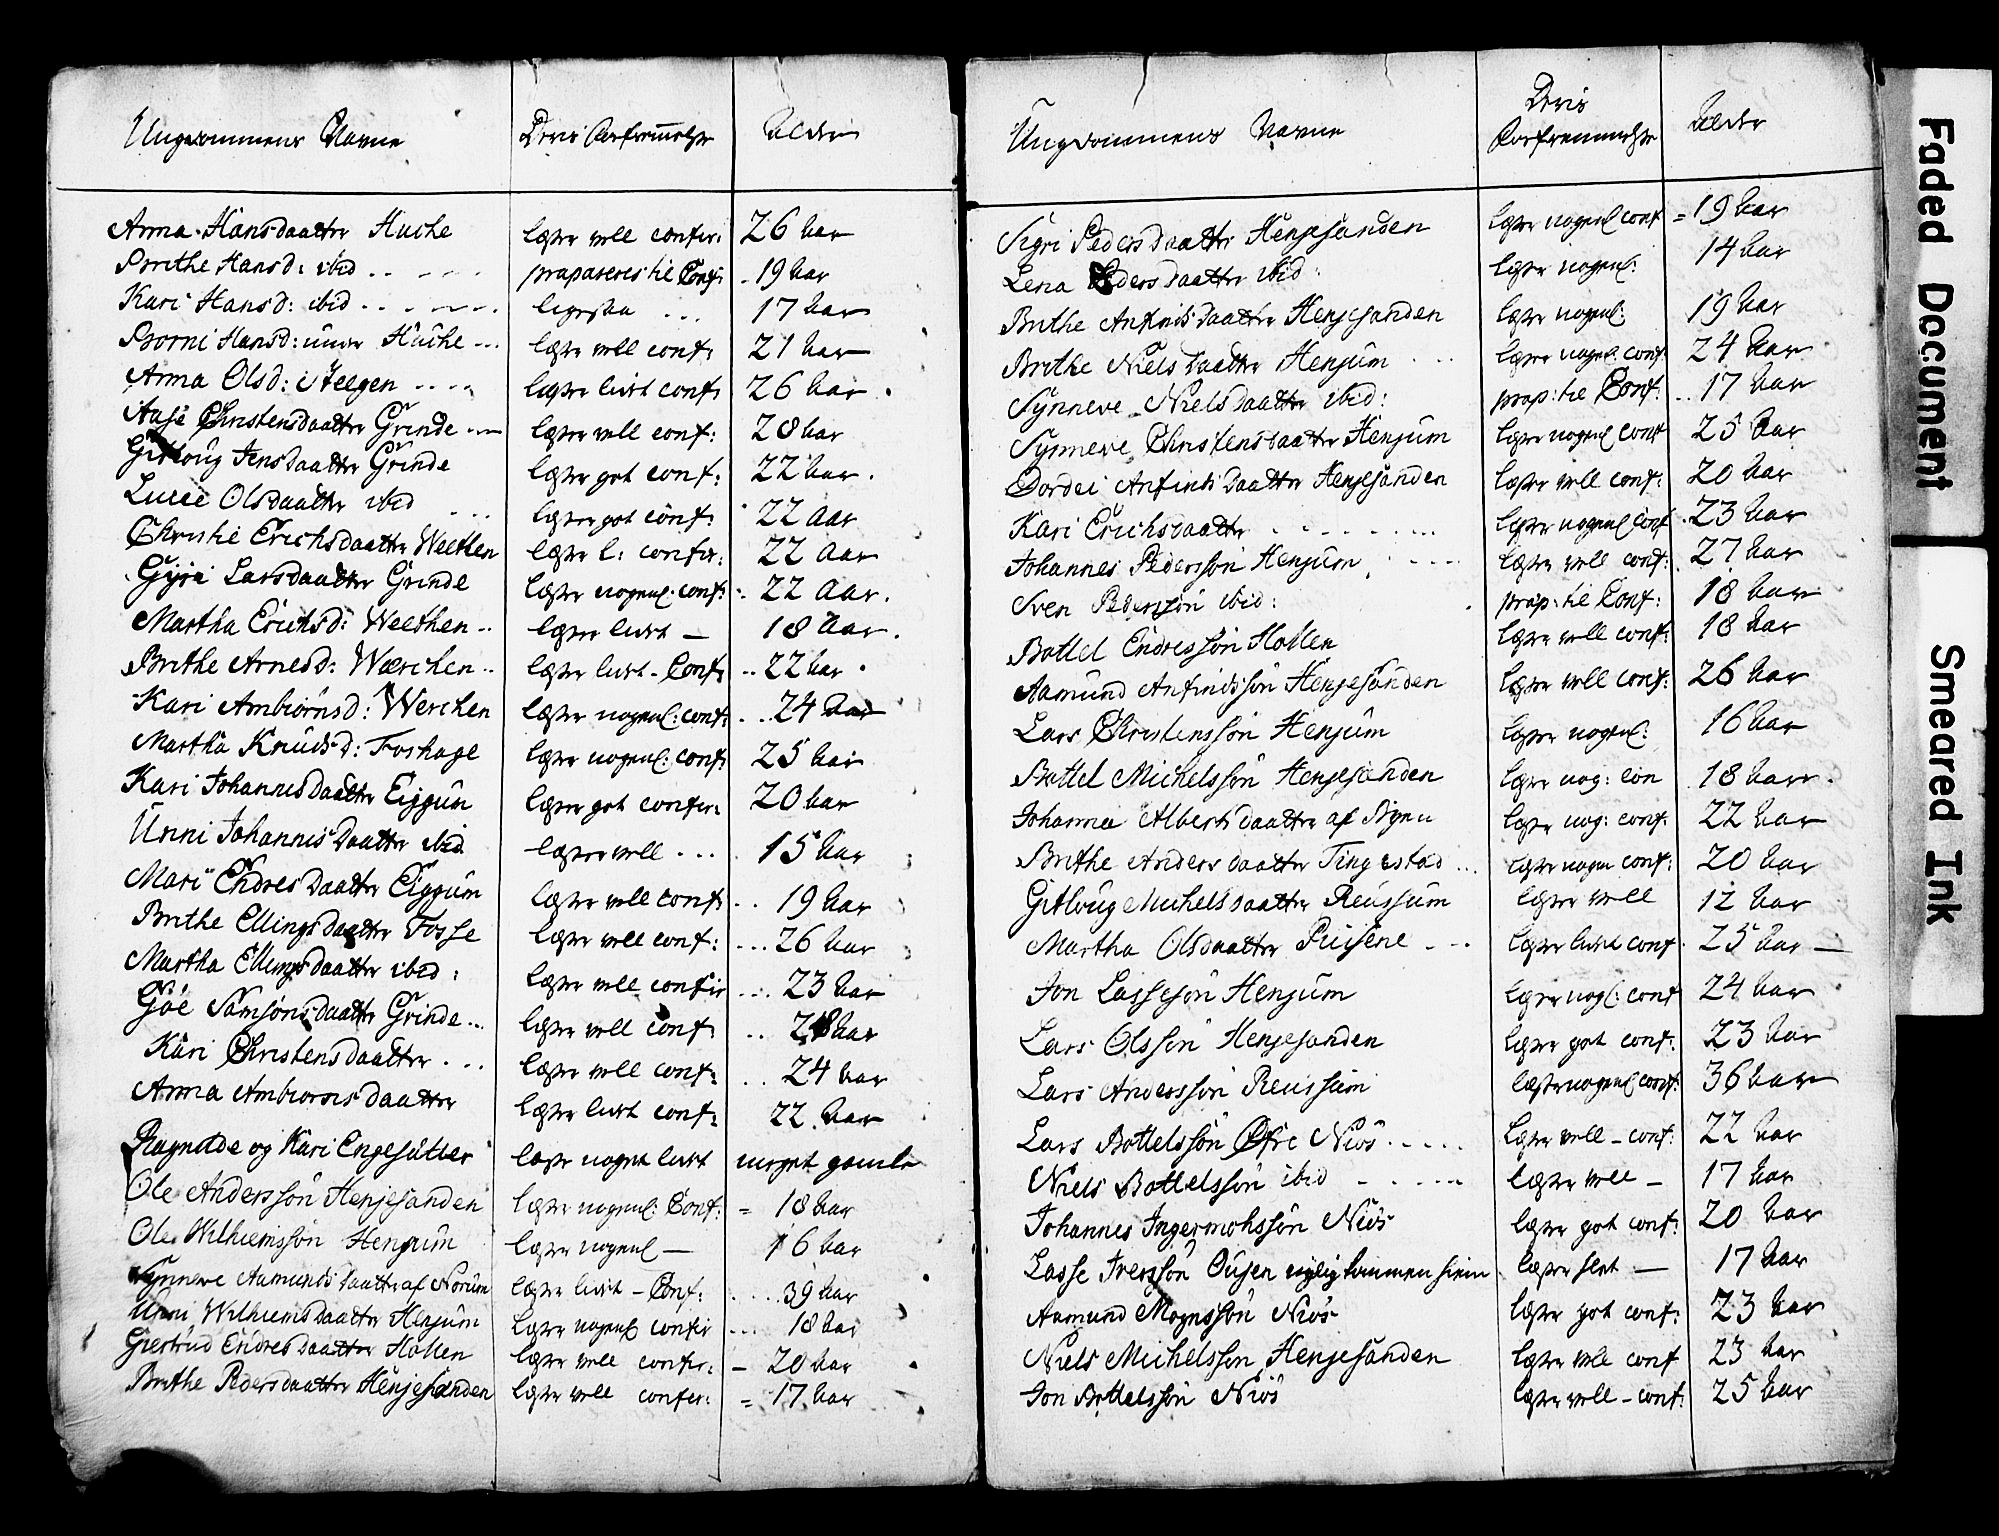 Ungdommens Navne | Deris Forfremmelse | Alder
Anna Hansdaatter Huche | læser vell confir: | 26 Aar
Brithe Hansd: ibid | præpareres til Conf: | 19 Aar
Kari Hansd: ibid | ligesaa | 17 Aar
Borni Hansd: under Huche | læser vell conf: | 21 Aar
Anna Olsd: | læser lidt conf: | 26 Aar
Aase Christensdaatter Grinde | læser vell conf: | 28 Aar
Gitloug Jensdaatter Grinde | læser got conf: | 22 Aar
Lucie Olsdaatter ibid | læser got conf: | 22 Aar
Christie Erichsdaatter Weethen | læser l: confir: | 22 Aar
Gyri Larsdaatter Grinde | læser nogenl: conf: | 22 Aar
Martha Erichsd: Weethen | læser lidt — | 18 Aar
Brithe Arnesd: Wærchen | læser lidt - Conf: | 22 Aar
Kari Ambiørnsd: Werchen | læser nogenl: conf: | 24 Aar
Martha Knudsd: Foshage | læser nogenl: conf: | 25 Aar
Kari Johannesdaatter Eiggum | læser got confir: | 20 Aar
Unni Johannisdaatter ibid | læser vell | 15 Aar
Mari Endresdaatter Eiggum | læser vell conf: | 19 Aar
Brithe Ellingsdaatter Fosse | læser vell conf: | 26 Aar
Martha Ellingsdaatter ibid: | læser vell confir | 23 Aar
Göe Samsønsdaatter Grinde | læser vell conf: | Aar
Kari Christensdaatter | læser vell conf: | 24 Aar
Anna Ambiornsdaatter | læser lidt conf: | 22 Aar
Ragnilde og Kari Engesætter | læser noget lidt | noget gamle
Ole Anderssøn Henjesanden | læser nogenl: Conf: | 18 Aar
Ole Wilhiemssøn Henjum | læser nogenl — | 16 Aar
Synneve Aamundsdaatter af Norum | læser lidt - Conf: | 39 Aar
Unni Wilhiemsdaatter Henjum | læser nogenl confir | 18 Aar
Giertrud Endresdaatter Hollen | læser vell confir: | 20 Aar
Brithe Pedersdaatter Henjesanden | læser vell confer: | 17 Aar
Ungdommens Navne | Deris Forfremmelse | Alder
Sigri Pedersdaatter Henjesanden | læser nogenl conf | 19 Aar
Lena Pedersdaatter ibid: | læser nogenl: | 14 Aar
Brithe Anfindsdaatter Henjesanden | læser nogenl: | 19 Aar
Brithe Nielsdaatter Henjum | læser nogenl: conf: | 24 Aar
Synneve Nielsdaatter ibid: | præp: til Conf: | 17 Aar
Synneve Christensdaatter Henjum | læser nogenl conf | 25 Aar
Dordei Anfindsdaatter Henjesanden | læser vell conf: | 20 Aar
Kari Erichsdaatter | læser nogenl conf | 23 Aar
Johannes Pederssøn Henjum | læser vell conf: | 27 Aar
Sven Pederssøn ibid: | præp: til Conf: | 18 Aar
Bottel Endressøn Hollen | læser vell conf: | 18 Aar
Aamund Anfindssøn Henjesanden | læser vell conf: | 26 Aar
Lars Christenssøn Henjum | læser nogenl: | 16 Aar
Bottel Michelssøn Henjesanden | læser nog: con | 18 Aar
Johanna Albertsdaatter af Byen | læser nog: conf: | 22 Aar
Brithe Andersdaatter Tingestad | læser nogen conf: | 20 Aar
Gitloug Michelsdaatter Reussum | læser vell | 12 Aar
Martha Olsdaatter | læser lidt conf | 25 Aar —
Jon Lassesøn Henjum | læser nogl: conf | 24 Aar
Lars Olssøn Henjesanden | læser got conf: | 23 Aar
Lars Anderssøn Reussum | læser nogenl conf: | 36 Aar
Lars Bottelssøn Øfre Niøs | læser vell - conf: | 22 Aar
Niels Bottelssøn ibid | læser vell — | 17 Aar
Johannes Ingermohssøn Niøs | læser got conf: | 20 Aar
Lasse Iverssøn Ousen nylig kommen hiem | læser slet — | 17 Aar
Aamund Mognssøn Niøs | læser got conf: | 23 Aar
Niels Michelssøn Henjesanden | læser vell conf | 23 Aar
Jon Bottelssøn Niøs | læser vell - conf: | 25 Aar
Faded Document
Smeared Ink